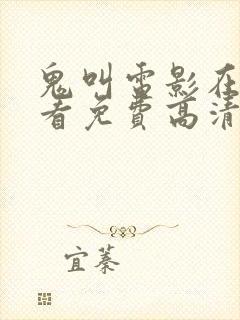 鬼叫雷影在
看免費高清
宜蓁